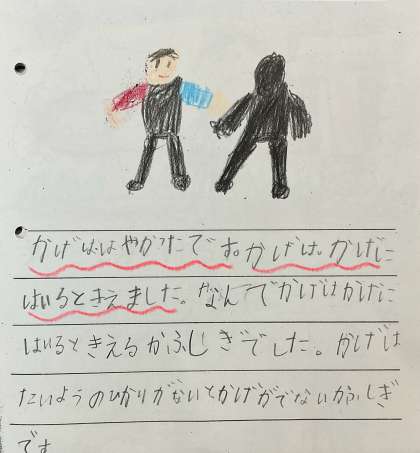 かげははやかったです。かげは。かげに
はいるときえました。なんでかげはかげに
はいるときえるかふしぎでした。かげは
たいようのひかりがないとかげがでないかふしぎ
です